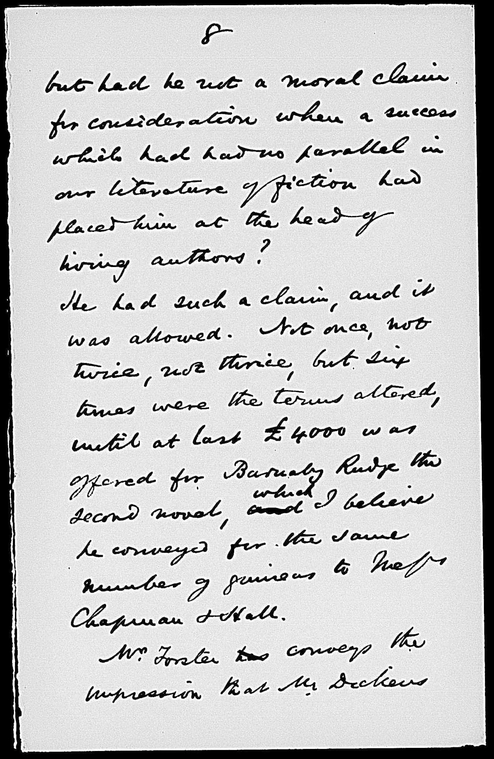 8
but had he not a moral claim
for consideration when a success
which had had no parallel in
our literature of fiction had
placed him at the head of
living authors?
He had such a claim, and it
was allowed. Not once, not
twice, not thrice, but six
times were the terms altered,
until at last £4000 was
offered for Barnaby Rudge the
which
second novel, and I believe
he conveyed for the same
number of guineas to Messrs
Chapman & Hall.
Mr. Forster has conveys the
impression that Mr Dickens